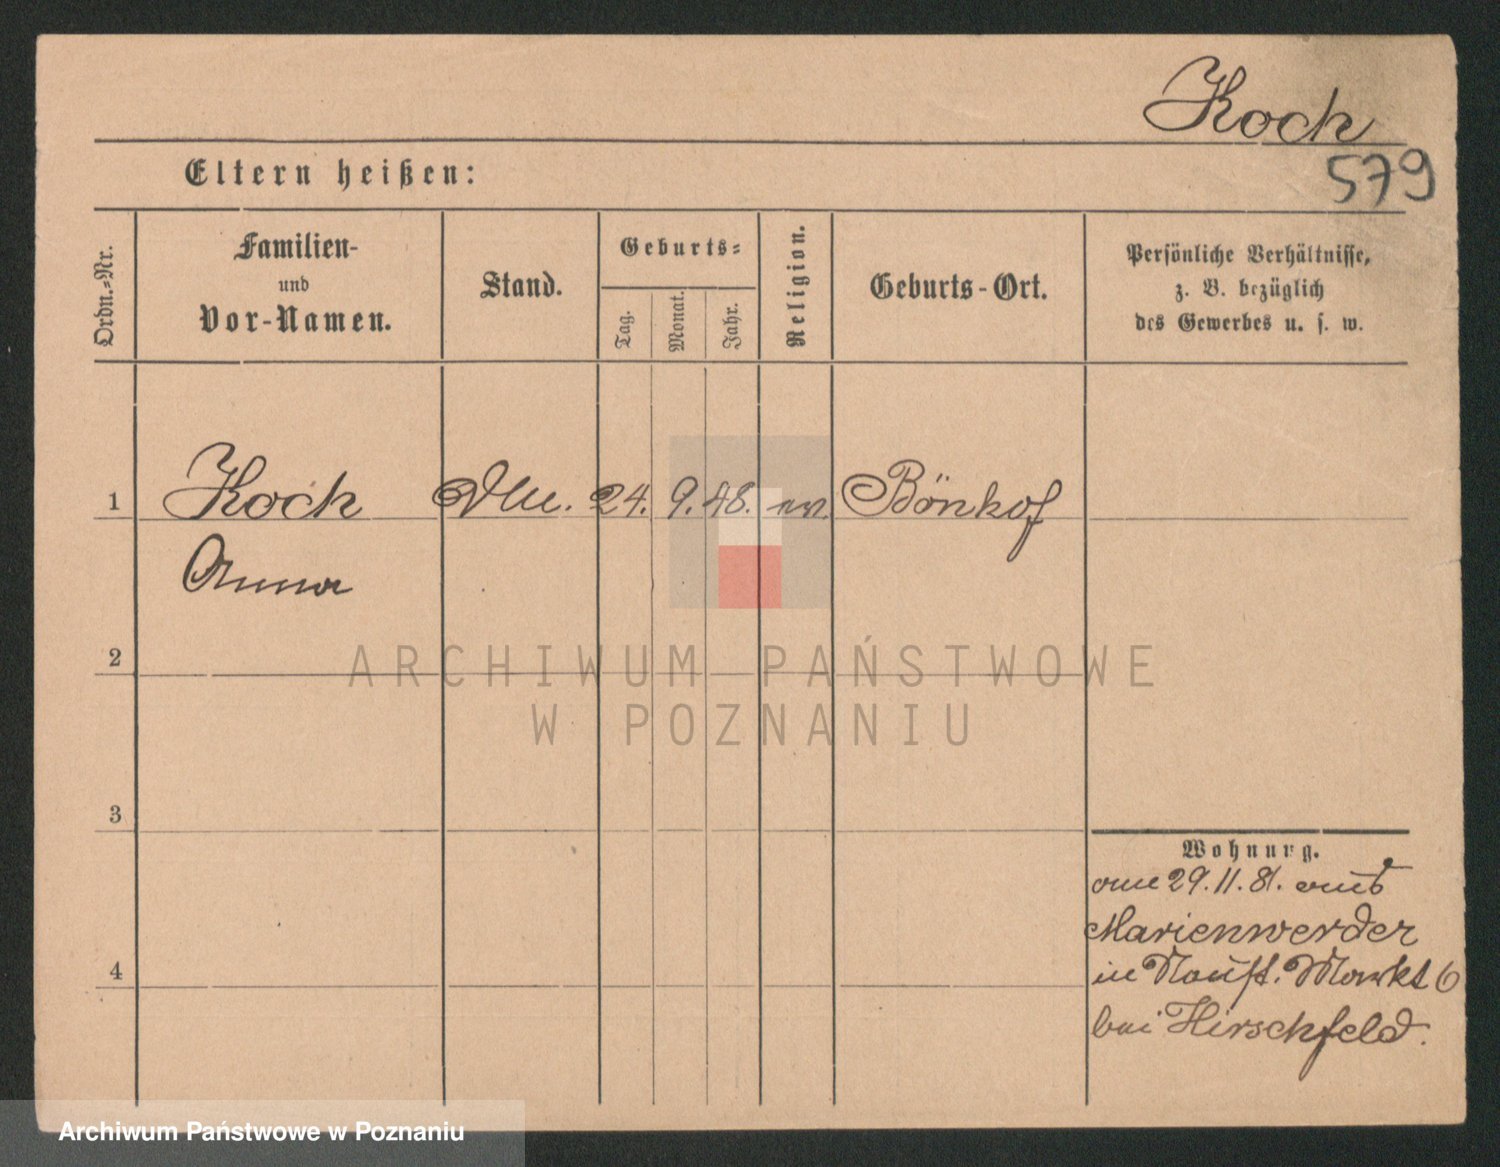 Koch
579
Eltern heißen:
Ordn.-Nr.
Familien-
und
Vor-Namen.
Stand.
Geburts-
Tag.
Monat.
Jahr.
Religion.
Geburts-Ort.
Persönliche Verhältnisse,
z. B. bezüglich
des Gewerbes u. s. w.
1 Koch 24. 9. 48. ev. Bönhof
Anna
2
ARCHIWUM PAŃSTWOWE
W POZNANIU
3
Wohnung.
am 29. 11. 81. aus
Marienwerder
4
in Neust. Markt 6
bei Hirschfeld.
Archiwum Państwowe w Poznaniu